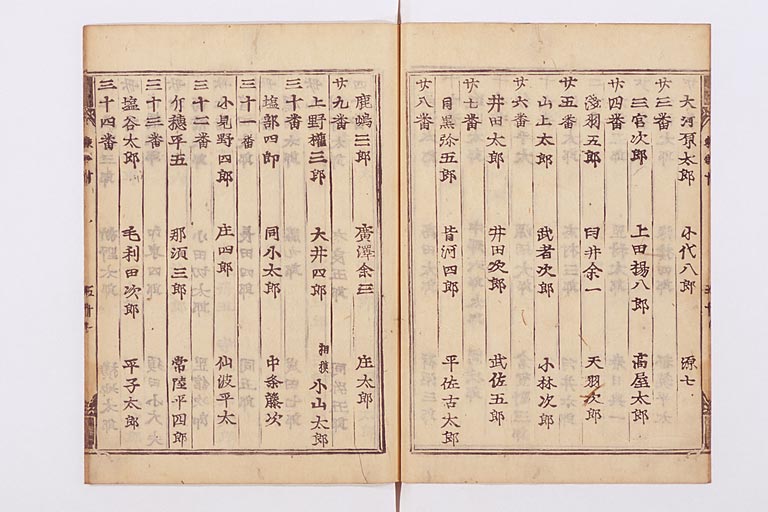 大河原太郎 小代八郎 源七
廿三番
三官次郎 上田楊八郎 高屋太郎
廿四番
羽五郎 臼井余一 天羽次郎
廿五番
山上太郎 武者次郎 小林次郎
廿六番
井田太郎 井田次郎 武佐五郎
廿七番
目黒弥五郎 皆河四郎 平佐古太郎
廿八番
鹿嶋三郎 廣澤余三 庄太郎
廿九番
上野權三郎 大井四郎 相模小山太郎
三十番
塩部四郎 同小太郎 中条藤次
三十一番
小見野四郎 庄四郎 仙波平太
三十二番
介穂平五 那須三郎 常陸平四郎
三十三番
塩谷太郎 毛利田次郎 平子太郎
三十四番